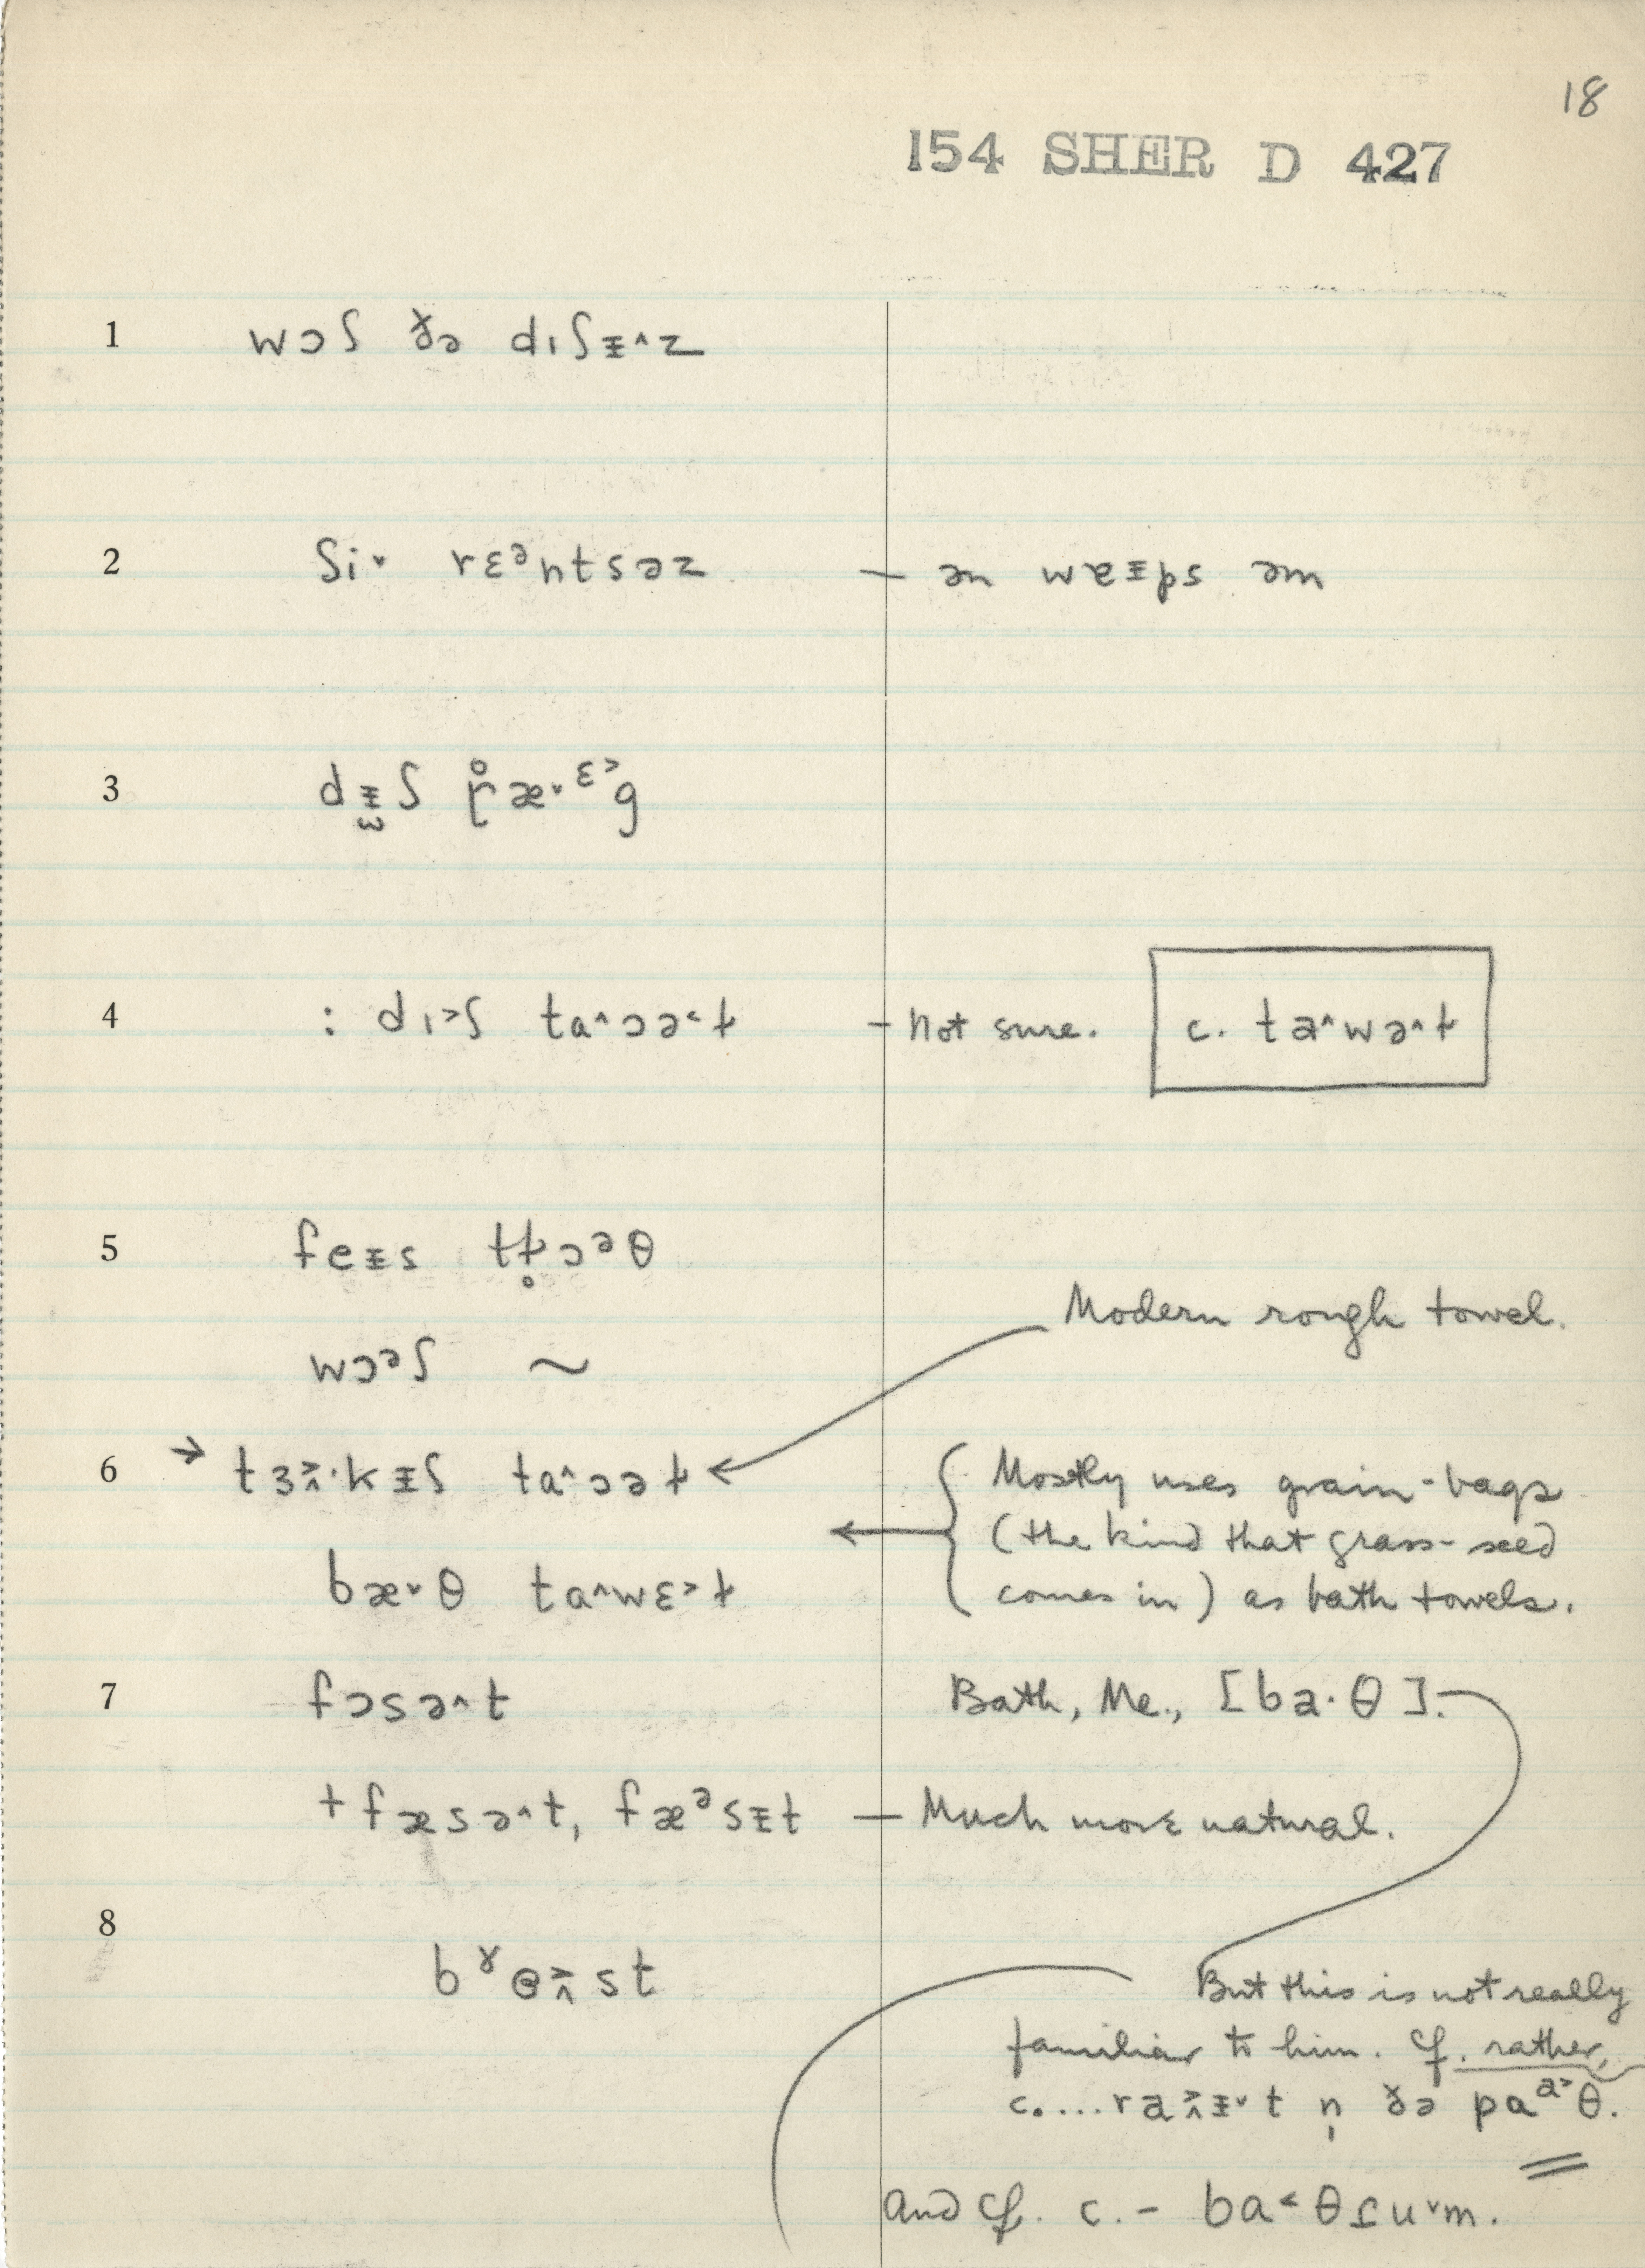 18
154 SHER D 427
1 wɔʃ ðə dɪʃᵻ^z
2 ʃi˅ rɛᵊntsəz — ən wɐᵻps əm
3 dᵻʃ ræ˅ᵋ˃g
4 : dɪ˃ʃ ta^ɔə˂ɫ — Not sure. c. ta^wə^ɫ
5 feᵻs tɫ̥ɔᵊθ
Modern rough towel.
wɔᵊʃ ~
6 → tɜ˞·kᵻʃ ta^ɔəɫ
Mostly uses grain-bags
(the kind that grass-seed
comes in) as bath towels.
bæ˅θ ta^wɛ˃ɫ
7 fɔsə^t Bath, Me., [ba·θ].
+ fæsə^t, fæᵊsᵻt — Much more natural.
8 bᵞɵst
But this is not really
familiar to him. Cf. rather,
c. ... raᵻ˅t n̩ ðə paᵃ˃θ.
And cf. c. - ba˂θ ru˅m.